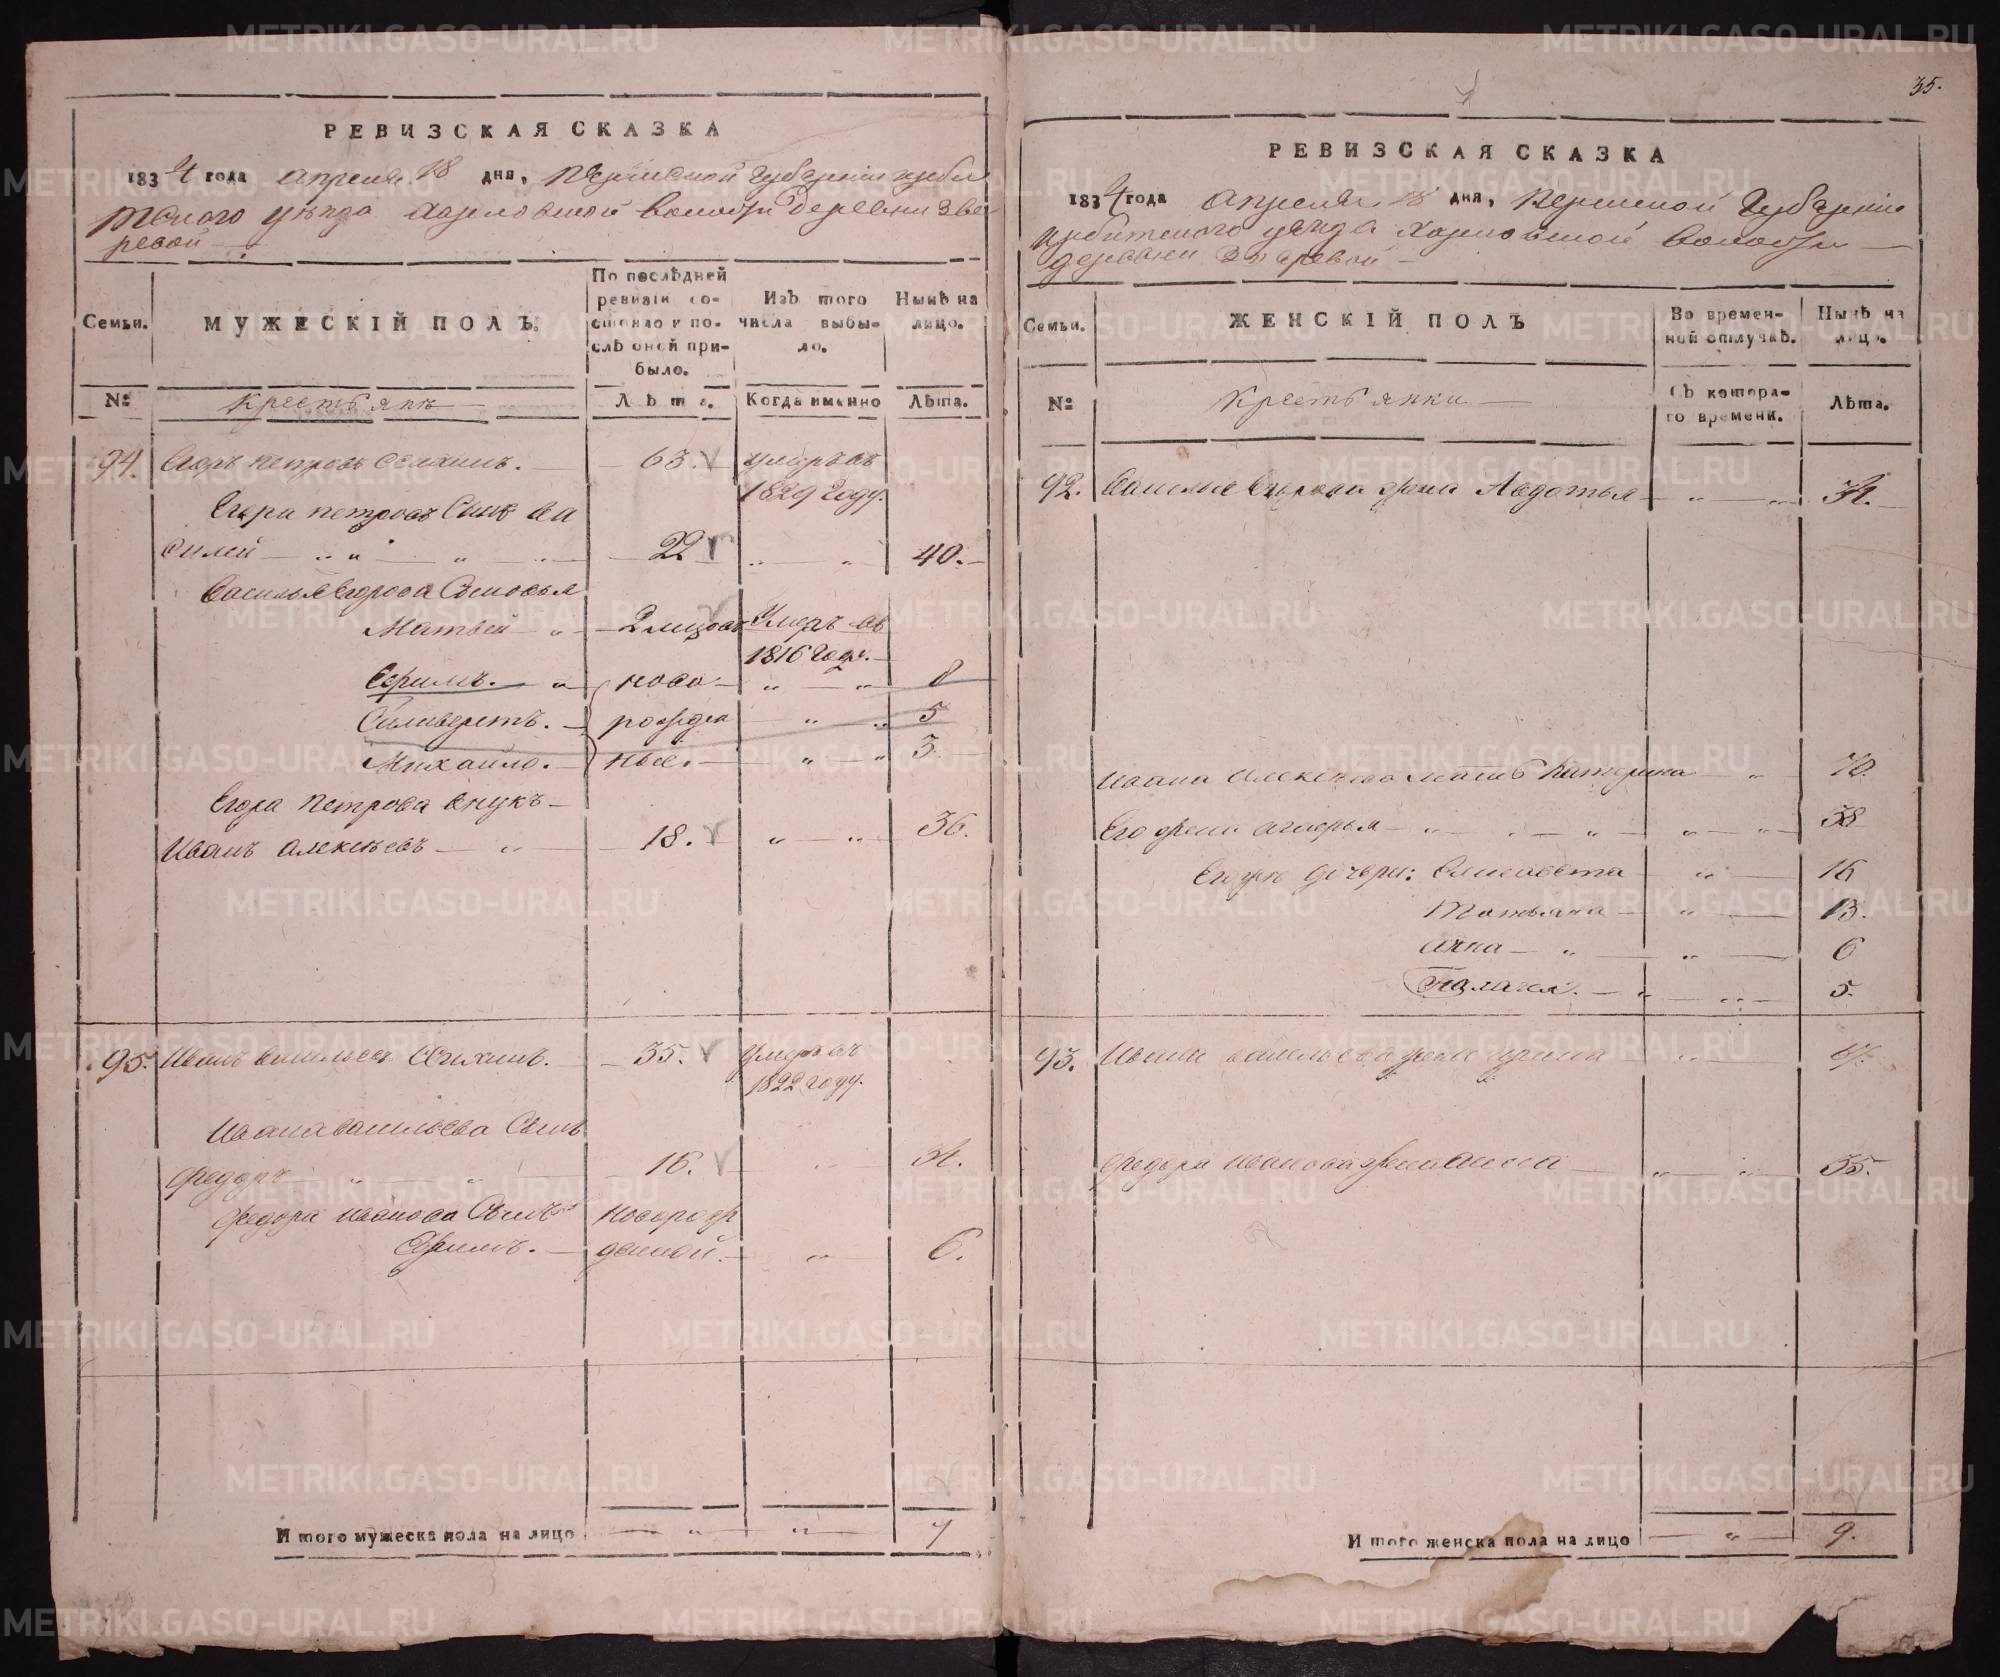 РЕВИЗСКАЯ СКАЗКА
1834 года апреля 18 дня, Пермской Губернии Ирби
тского уѣзда Харловской волости деревни Зве
ревой
Семьи. МУЖЕСКІЙ ПОЛЪ. По послѣдней ревизіи состояло и послѣ оной прибыло. Изъ того числа выбыло. Нынѣ на лицо.
№ Крестьянъ Лѣта. Когда именно Лѣта.
94. Егоръ петровъ 63. умеръ въ
1829 году.
Егора петрова Сынъ ва
силей 22 " " 40.
Василья Егорова Сыновья
Матвей " 2 мицовъ Умеръ въ
1816 годе.
Ефимъ. " ново " " 8
Силиверстъ. рожден " " 5
Михайло. ные. " " 3.
Егора Петрова внукъ
Иванъ алексѣевъ " 18. " " 36.
95. Иванъ василъевъ 35. умеръ въ
1822 году.
Ивана васильева Сынъ
федоръ " " 16. " 34.
федора иванова Сынъ новорож
Ефимъ. денной. " 6.
Итого мужеска пола на лицо " " 7
35.
РЕВИЗСКАЯ СКАЗКА
1834 года апреля 18 дня, Пермской Губерніи
Ирбитского уѣзда Харловской волости
деревни Зверевой
Семьи. ЖЕНСКІЙ ПОЛЪ Во временной отлучкѣ. Нынѣ на лицо.
№ Крестьянки Съ котораго времени. Лѣта.
92. Василья Егорова жена Авдотья " " 34.
Ивана Алексѣева мать Катерина " 70.
Его жена " " " " 38
Егоже дочери: Елисавета " 16
Татьяна " 13.
анна " " 6
Палагея. " " 5.
95. Ивана васильева жена ирина " 57.
федора иванова жена анна " " 35.
Итого женска пола на лицо " 9.
METRIKI.GASO-URAL.RU